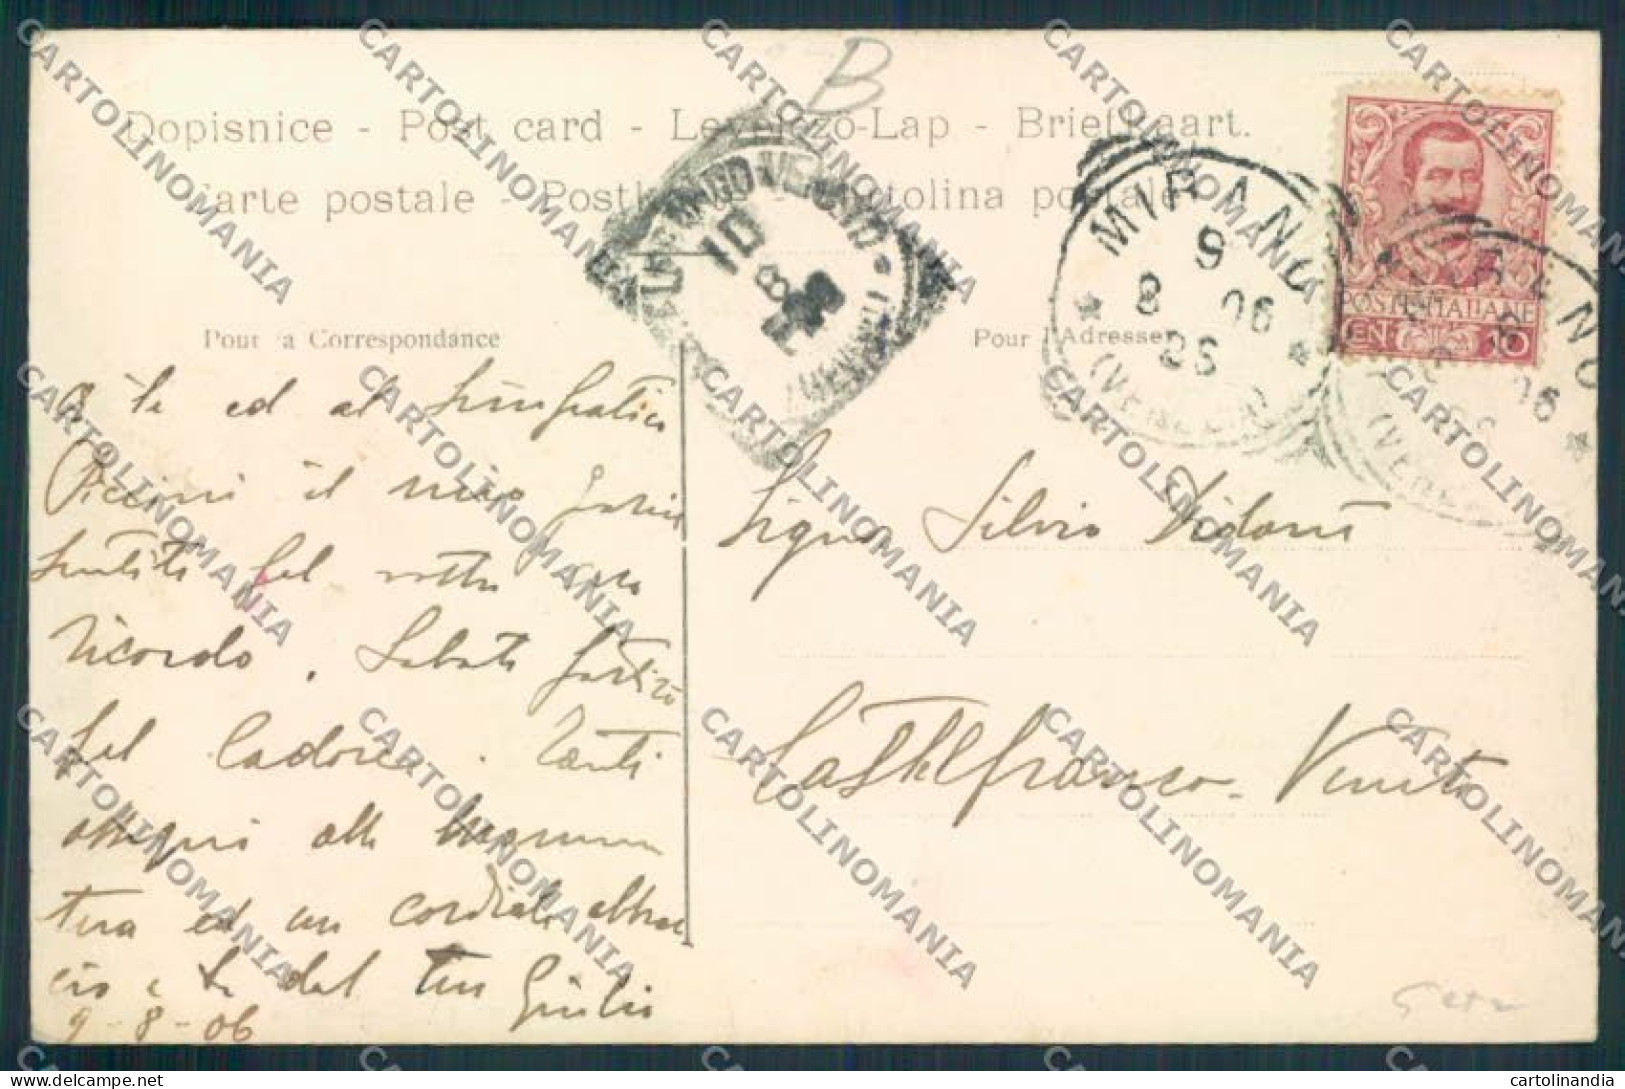 B
Dopisnice - Post card - Levelezo-Lap - Briefkaart.
Carte postale - Postkarte - Cartolina postale
CASTELFRANCO VENETO
10
8
MIRANO
9
8 06
(VENEZIA)
POSTE ITALIANE
CEN. 10
Pour la Correspondance
Pour l'Adresse
A te ed al simpatico
Piccini il mio
sentito pel vostro caro
ricordo. Sabato partirò
pel Cadore. Tanti
ossequi alla
tua ed un cordiale abbrac
cio a te dal tuo Giulio
9-8-06
Signor Silvio
Castelfranco-Veneto
CARTOLINOMANIA
delcampe.net
cartolinandia